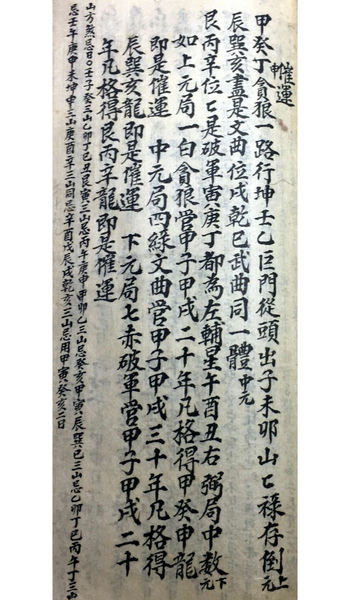 催運
甲癸申貪狼一路行坤壬乙巨門從頭出子未卯山山祿存倒上元
辰巽亥盡是文曲位戌乾巳武曲同一體中元
艮丙辛位位是破軍寅庚丁都為左輔星午酉丑右弼局中数下元
如上元局一白貪狼管甲子甲戌二十年凡格得甲癸申龍
即是催運 中元局四綠文曲管甲子甲戌三十年凡格得
辰巽亥龍即是催運 下元局七赤破軍管甲子甲戌二十
年凡格得艮丙辛龍即是催運
山方煞忌日○壬子癸三山乙卯丁巳丑艮寅三山忌丙午庚申甲卯乙三山忌癸亥甲寅辰巽巳三山忌乙卯丁巳丙午丁三山
忌壬午庚申未坤申三山庚酉辛三山同忌辛酉戊辰戌乾亥三山忌用甲寅癸亥二日